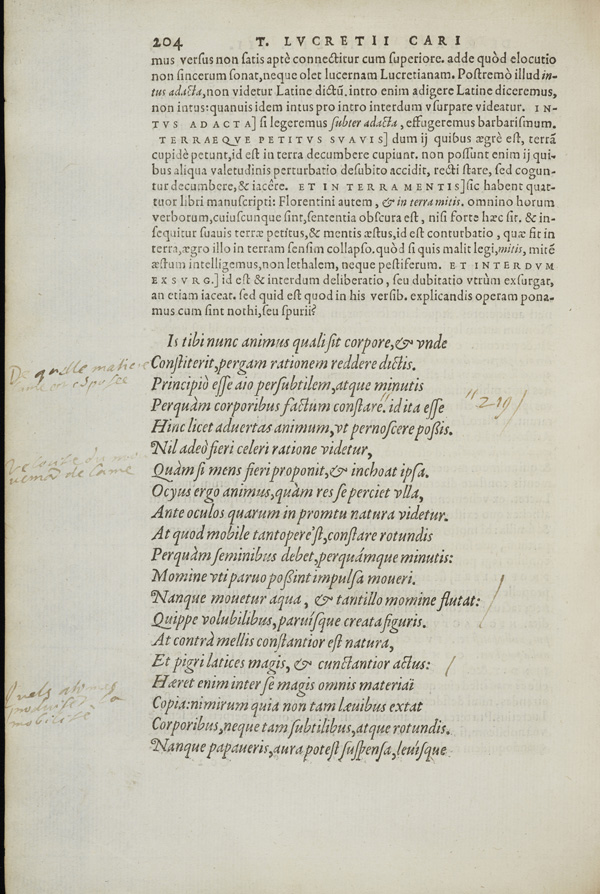 204 T. LVCRETII CARI
mus versus non satis aptè connectitur cum superiore. adde quòd elocutio
non sincerum sonat, neque olet lucernam Lucretianam. Postremò illud in-
tus adacta, non videtur Latine dictũ. intro enim adigere Latine diceremus,
non intus: quanuis idem intus pro intro interdum vsurpare videatur. IN-
TVS ADACTA] si legeremus subter adacta, effugeremus barbarismum.
TERRAEQVE PETITVS SVAVIS] dum ij quibus ægrè est, terrã
cupidè petunt, id est in terra decumbere cupiunt. non possunt enim ij qui-
bus aliqua valetudinis perturbatio desubito accidit, recti stare, sed cogun-
tur decumbere, & iacêre. ET IN TERRA MENTIS] sic habent quat-
tuor libri manuscripti: Florentini autem, & in terra mitis. omnino horum
verborum, cuiuscunque sint, sententia obscura est, nisi forte hæc sit. & in-
sequitur suauis terræ petitus, & mentis æstus, id est conturbatio, quæ fit in
terra, ægro illo in terram sensim collapso. quòd si quis malit legi, mitis, mitẽ
æstum intelligemus, non lethalem, neque pestiferum. ET INTERDVM
EXSVRG.] id est & interdum deliberatio, seu dubitatio vtrùm exsurgat,
an etiam iaceat. sed quid est quod in his versib. explicandis operam pona-
mus cum sint nothi, seu spurii?
Is tibi nunc animus quali sit corpore, & vnde
Constiterit, pergam rationem reddere dictis.
De quelle matiere
Principiò esse aio persubtilem, atque minutis
Perquàm corporibus factum constare. id ita esse
"219/
Hinc licet aduertas animum, vt pernoscere possis.
Nil adeò fieri celeri ratione videtur,
Quàm si mens fieri proponit, & inchoat ipsa.
de lame
Ocyus ergo animus, quàm res se perciet vlla,
Ante oculos quarum in promtu natura videtur.
At quod mobile tantopere'st, constare rotundis
Perquàm seminibus debet, perquámque minutis:
Momine vti paruo possint impulsa moueri.
Nanque mouetur aqua, & tantillo momine flutat:
Quippe volubilibus, paruisque creata figuris.
At contrà mellis constantior est natura,
Et pigri latices magis, & cunctantior actus:
Hæret enim inter se magis omnis materiaï
Quels atomes
Copia: nimirum quia non tam læuibus extat
mobilité
Corporibus, neque tam subtilibus, atque rotundis.
Nanque papaueris, aura potest suspensa, leuisque